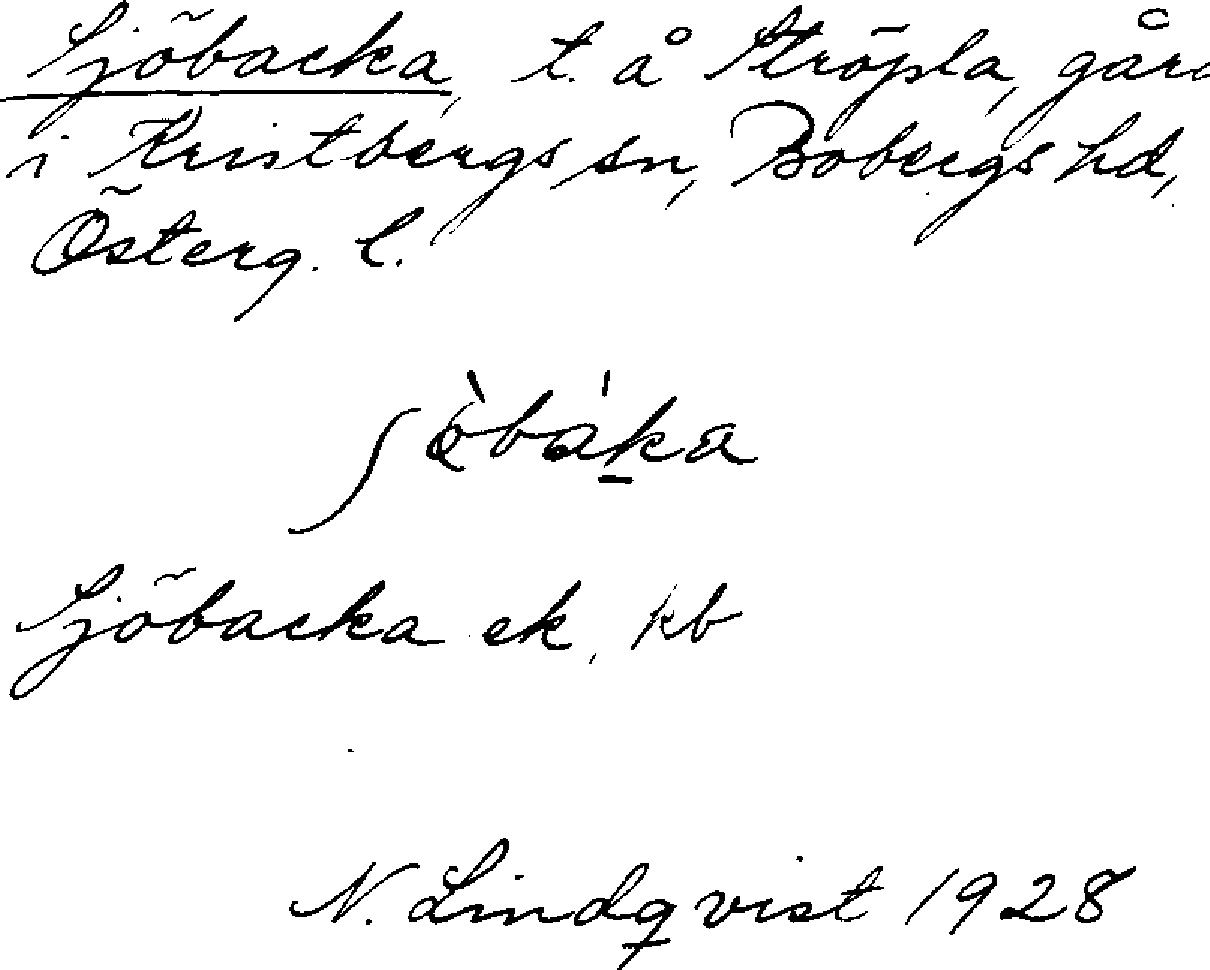 Sjöbacka, t. å Ströpla, gård
i Kristbergs sn, Bobergs hd,
Österg. l.
Sjöbacka ek, kb
N. Lindqvist 1928